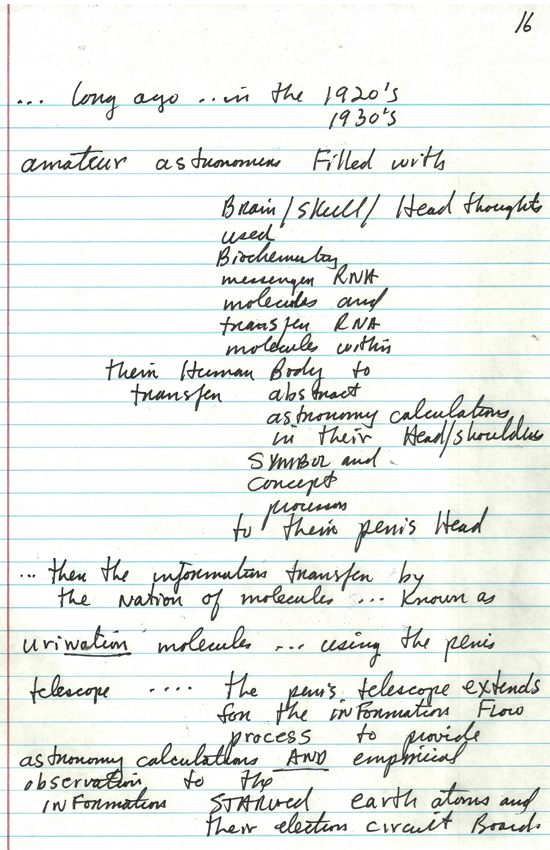 16
... long ago ... in the 1920's
1930's
amateur astronomers Filled with
Brain/skull/Head thoughts
used
Biochemistry
messenger RNA
molecules and
transfer RNA
molecules within
their Human Body to
transfer abstract
astronomy calculations
in their Head/shoulders
SYMBOL and
Concept
processors
to their penis Head
... then the information transfer by
the Nation of molecules ... Known as
uriNation molecules ... using the penis
telescope .... the penis telescope extends
for the inFormation Flow
process to provide
astronomy calculations AND empirical
observation to the
inFormation STARved earth atoms and
their electron circuit Boards